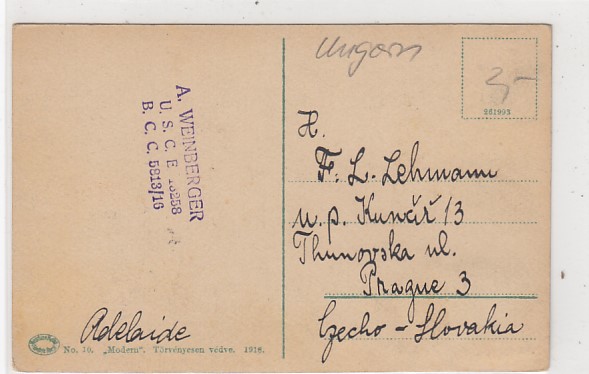 Ungarn
3,-
261995
A. WEINBERGER
U. S. C. E 13258
B. C. C. 5813/16
H.
F. L. Lehmann
u. p. Kunčíř /3
Thunovska ul.
Prague 3
Czecho-Slovakia
Adelaide
No. 10. „Modern". Törvényesen védve. 1916.